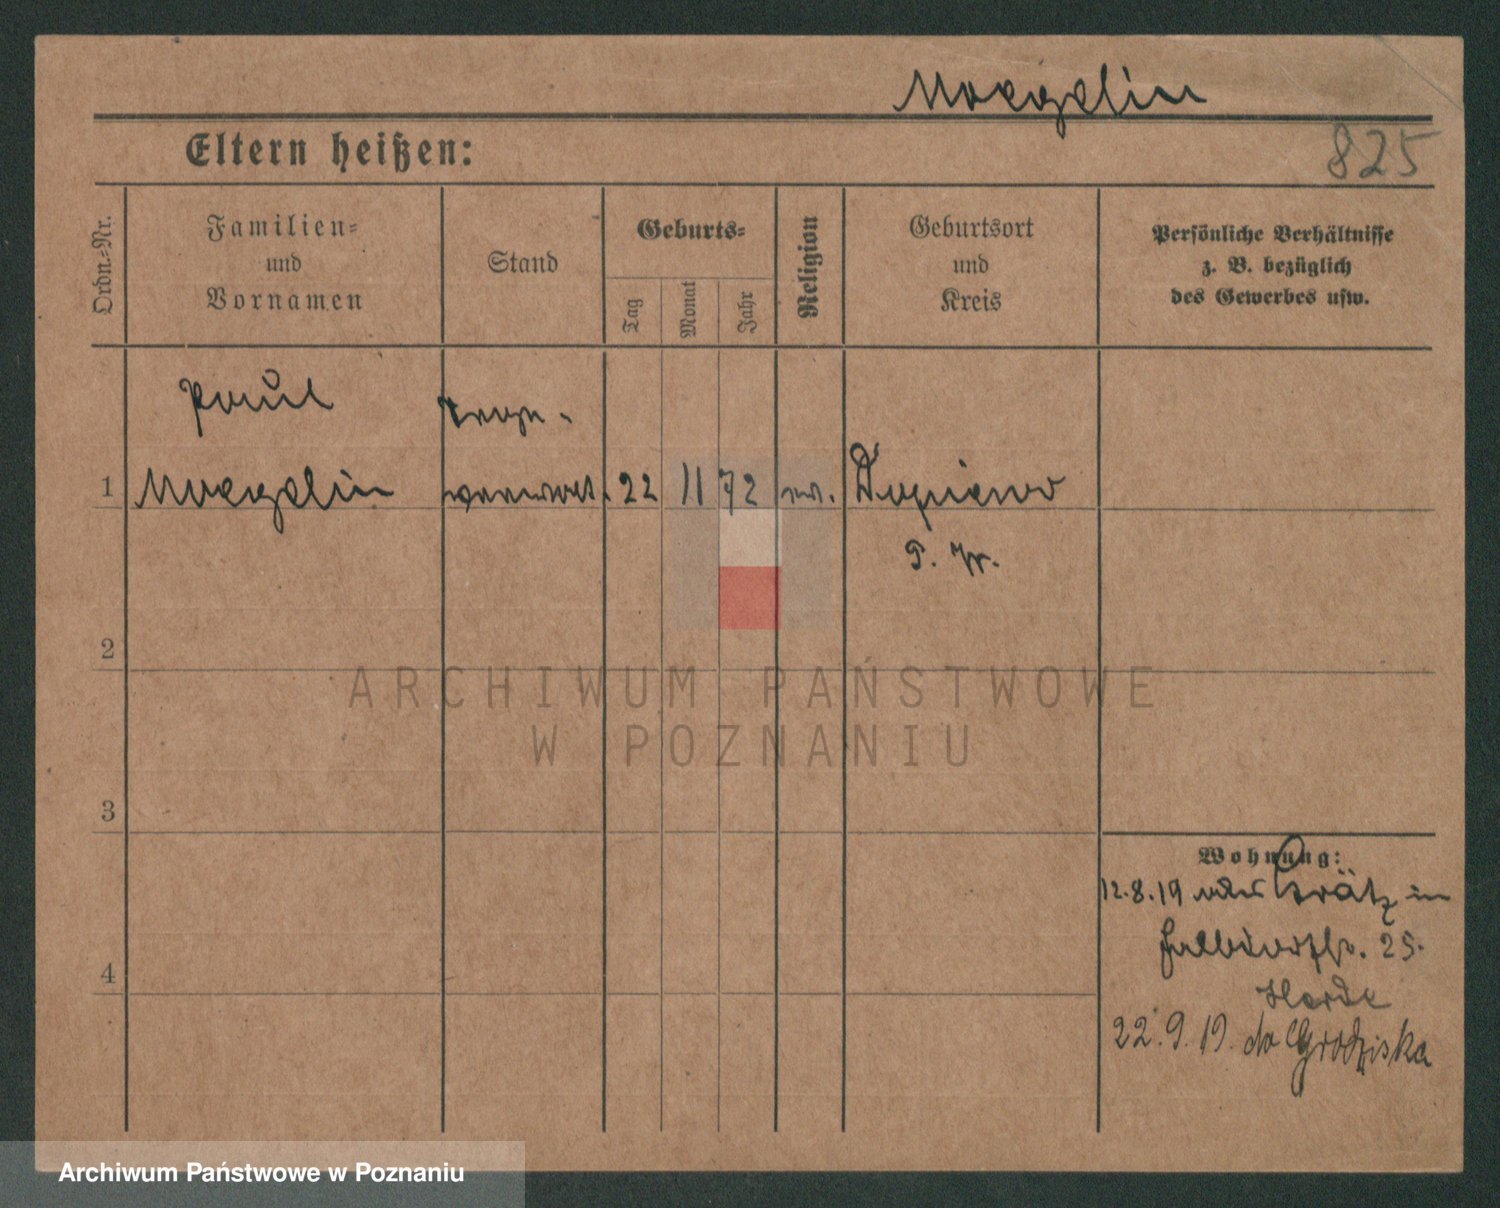 Moegelin
Eltern heißen:
825
Ordn.-Nr.
Familien-
und
Vornamen
Stand
Geburts-
Tag
Monat
Jahr
Religion
Geburtsort
und
Kreis
Persönliche Verhältnisse
z. B. bezüglich
des Gewerbes usw.
Paul
1 Moegelin
22 11 72
Dupiewo
2
3
4
Wohnung:
12.8.19 Grätz in
25.
22.9.19. do Grodziska
ARCHIWUM PAŃSTWOWE
W POZNANIU
Archiwum Państwowe w Poznaniu